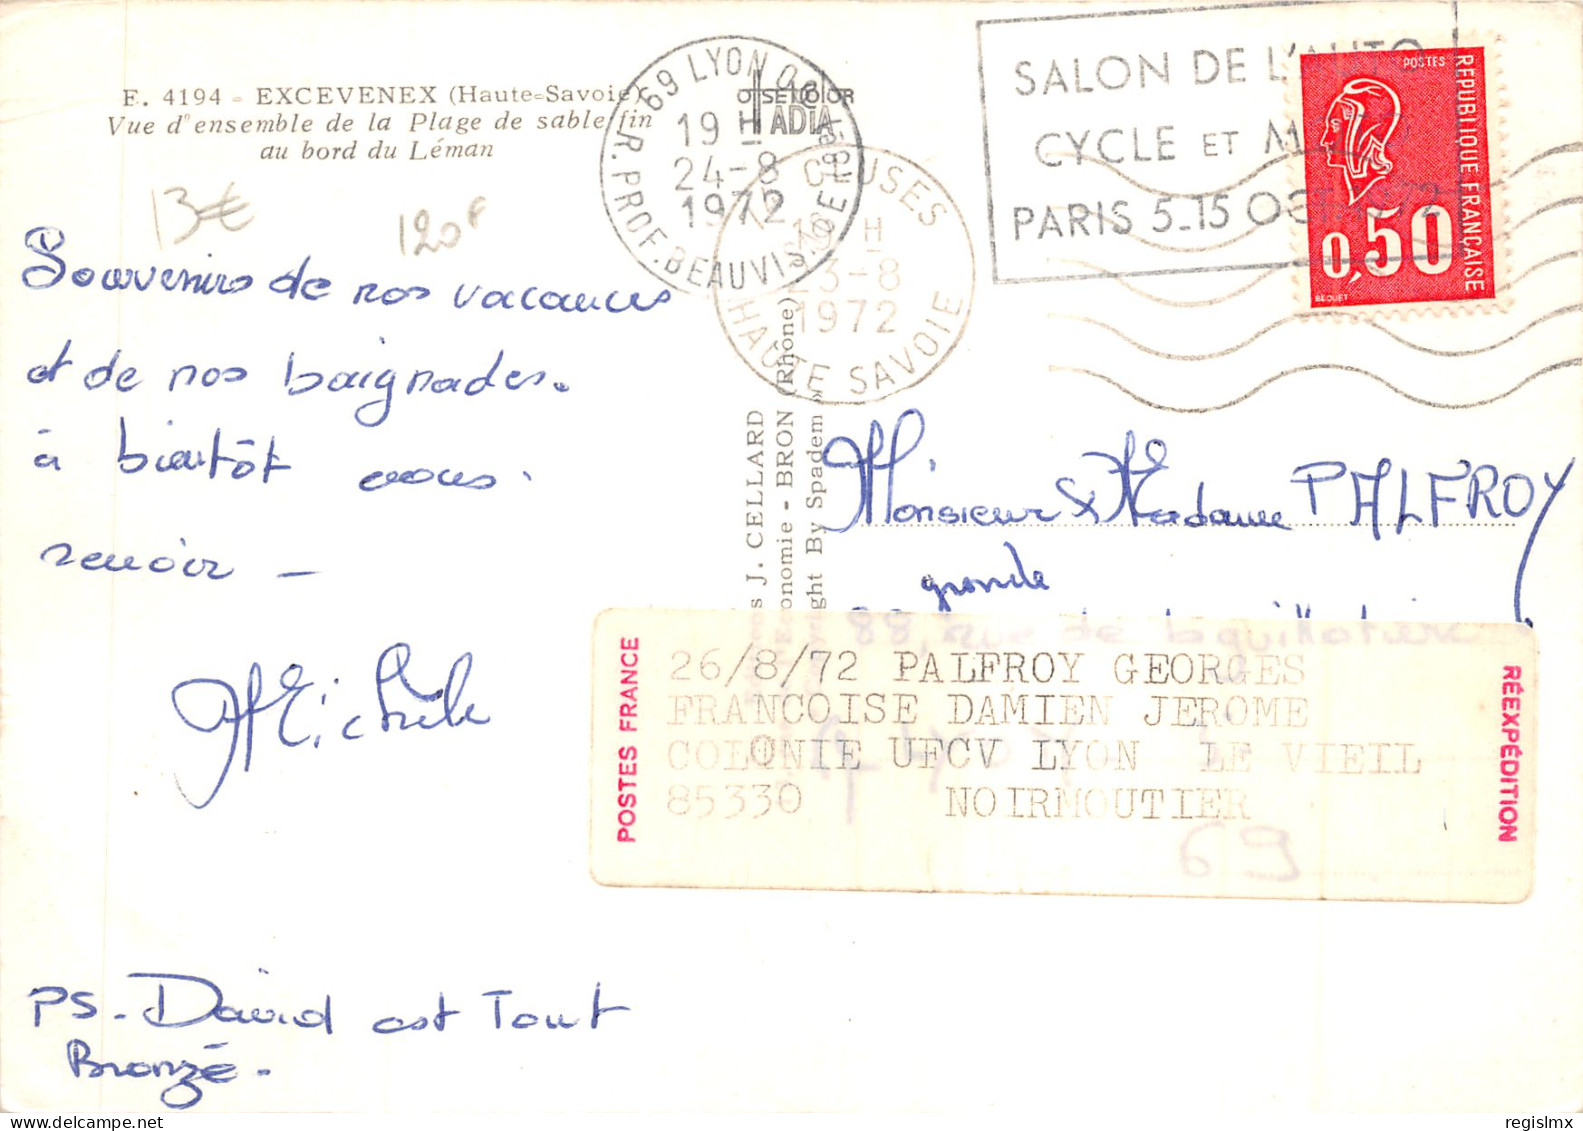 E. 4194 - EXCEVENEX (Haute-Savoie)
Vue d'ensemble de la Plage de sable fin
au bord du Léman
13€
120F
Souvenirs de nos vacances
et de nos baignades.
à bientôt vous
revoir -
Michèle
PS - David est Tout
Bronzé -
69 LYON 08
19 H
24-8
1972
R. PROF. BEAUVISAGE (8E)
CLUSES
16 H
23-8
1972
HAUTE SAVOIE
SALON DE L'AUTO
CYCLE ET MOTO
PARIS 5-15 OCT. 1972
POSTES
REPUBLIQUE FRANÇAISE
0,50
BEQUET
J. CELLARD
BRON (Rhône)
By Spadem
Monsieur & Madame PALFROY
grande
88, rue de
69
POSTES FRANCE
26/8/72 PALFROY GEORGES
FRANCOISE DAMIEN JEROME
COLONIE UFCV LYON LE VIEIL
85330 NOIRMOUTIER
RÉEXPÉDITION
regislmx